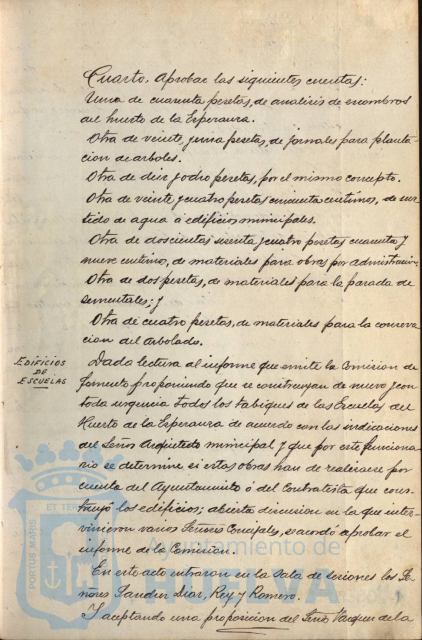 Cuarto. Aprobar las siguientes cuentas:
Una de cuarenta pesetas, de analisis de escombros
del huerto de la Esperanza.
Otra de veinte y una pesetas, de jornales para planta-
cion de arboles.
Otra de diez y ocho pesetas, por el mismo concepto.
Otra de veinte y cuatro pesetas cincuenta centimos, de sur-
tido de agua á edificios municipales.
Otra de doscientas sesenta y cuatro pesetas cuarenta y
nueve centimos, de materiales para obras por administracion.
Otra de dos pesetas, de materiales para la parada de
sementales; y
Otra de cuatro pesetas, de materiales para la conserva-
cion del arbolado.
EDIFICIOS
DE
ESCUELAS
Dada lectura al informe que emite la Comision de
fomento proponiendo que se construyan de nuevo y con
toda urgencia todos los tabiques de las Escuelas del
Huerto de la Esperanza de acuerdo con las indicaciones
del Señor Arquitecto municipal y que por este funciona-
rio se determine si estas obras han de realizarse por
cuenta del Ayuntamiento ó del Contratista que cons-
truyó los edificios; abierta discusion en la que inter-
vinieron varios Señores Concejales, se acordó aprobar el
informe de la Comision.
En este acto entraron en la Sala de sesiones los Se-
ñores Sanchez Diaz, Rey y Romero.
Y aceptando una proposicion del Señor Vazquez de la
PORTUS MARIS
ET TE
Ayuntamiento de
HUELVA